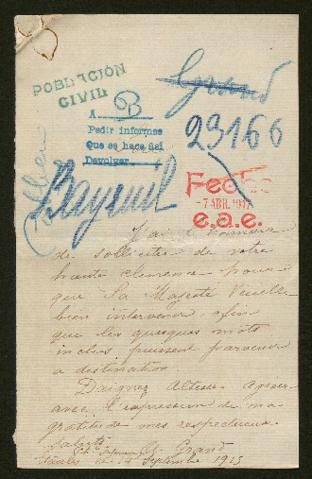 Grand
POBLACIÓN
CIVIL
A B
Pedir informes
Que se hace así
Devolver
29166
Fecha
-7 ABR. 1917
e.a.e.
J'ai l'honneur
de solliciter de votre
haute clemence pour
que Sa Majesté Veuille
bien intervenir, afin
que les quelques mots
inclus puissent parvenir
a destination.
Daignez Altesse Agréer
avec l'expression de ma
gratitude mes respectueux
saluts
Grand
le 14 Septembre 1915